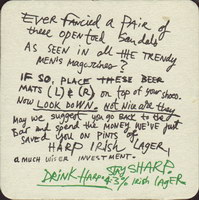 EVER fancied a PAIR of
these open toed Sandals
AS SEEN in all THE TRENDY
MEN'S Magazines?
IF SO, PLACE THESE BEER
MATS (L) & (R) on top of your shoes.
Now LOOK DOWN. Not Nice are they
May we suggest you go BACK to the
Bar and spend the MONEY we've just
SAVED you on PINTS of
HARP IRISH LAGER,
a much wiser INVESTMENT.
STAY SHARP.
DRINK HARP. 4.3% IRISH LAGER